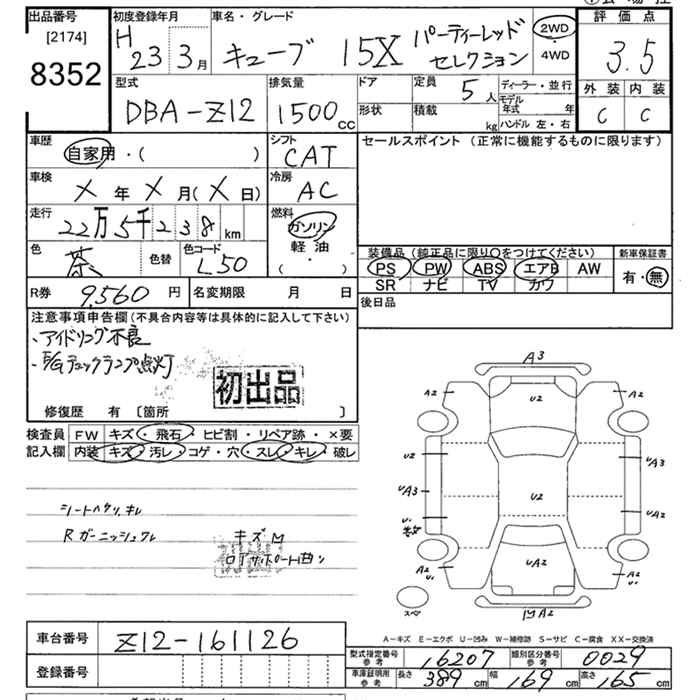 出品番号
[2174]
8352
初度登録年月
H 23 3月
車名・グレード
キューブ 15X パーティーレッド
セレクション
2WD
4WD
評価点
3.5
外装 内装
C C
型式
DBA-Z12
排気量
1500cc
ドア
形状
定員 5人
積載 kg
ディーラー・並行
モデル年式 年
ハンドル 左・右
車歴
自家用・( )
シフト
CAT
セールスポイント (正常に機能するものに限ります)
車検
X年X月(X日)
冷房
AC
走行
22万5千238km
燃料
ガソリン
軽油
( )
色
茶
色替
色コード
L50
装備品 (純正品に限り○をつけてください)
PS PW ABS エアB AW
SR ナビ TV カワ
新車保証書
有・無
R券 9,560円
名変期限 月 日
後日品
注意事項申告欄(不具合内容等は具体的に記入して下さい)
・アイドリング不良
・E/Gチェックランプ点灯
初出品
修復歴 有 [箇所 ]
検査員
記入欄
FW キズ・飛石・ヒビ割・リペア跡・×要
内装 キズ・汚レ・コゲ・穴・スレ・キレ・破レ
シートヘタリ、キレ
Rガーニッシュワレ
キズM
初出品
ロアサポート曲り
A3
A2 U2 A2
U2 A3
UA3 U2 UA2
U1
A2 U1 UA2 A2 U1
スペア
UA2
A-キズ E-エクボ U-凹み W-補修跡 S-サビ C-腐食 XX-交換済
車台番号
Z12-161126
登録番号
型式指定番号
参考
16207
類別区分番号
参考
0029
車庫証明用
参考
長さ 389cm 幅 169cm 高さ 165cm